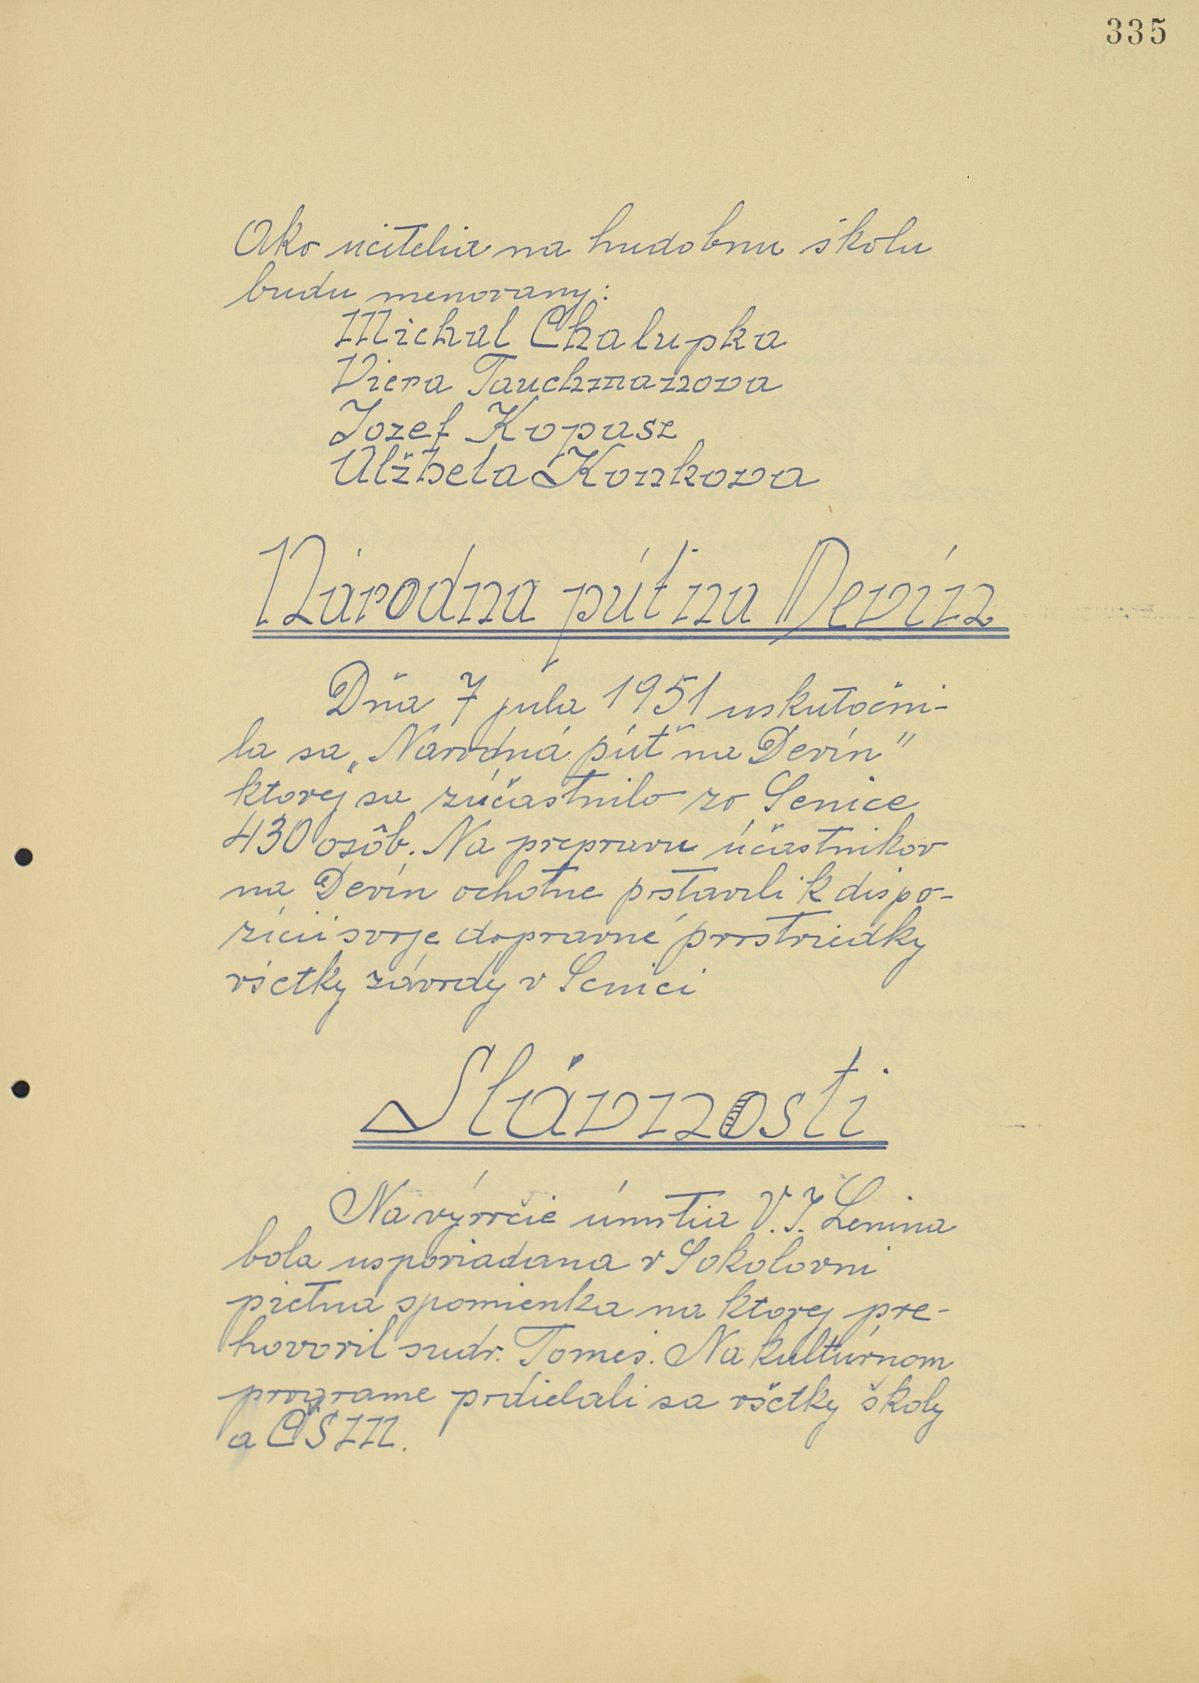 335
Ako učitelia na hudobnu školu
budu menovany:
Michal Chalupka
Viera Tauchmanova
Jozef Kopasz
Alžbeta Konkova
Národna púť na Devín
Dňa 7 jula 1951 uskutočni-
la sa „Národná púť na Devín"
ktorej sa zúčastnilo zo Senice
430 osôb. Na prepravu účastnikov
na Devín ochotne postavili k dispo-
zícii svoje dopravné prostriedky
všetky závody v Senici
Slávnosti
Na výročie úmrtia V. I. Lenina
bola usporiadana v Sokolovni
pietna spomienka na ktorej pre-
hovoril sudr. Tomeš. Na kultúrnom
programe podielali sa všetky školy
a ČSM.